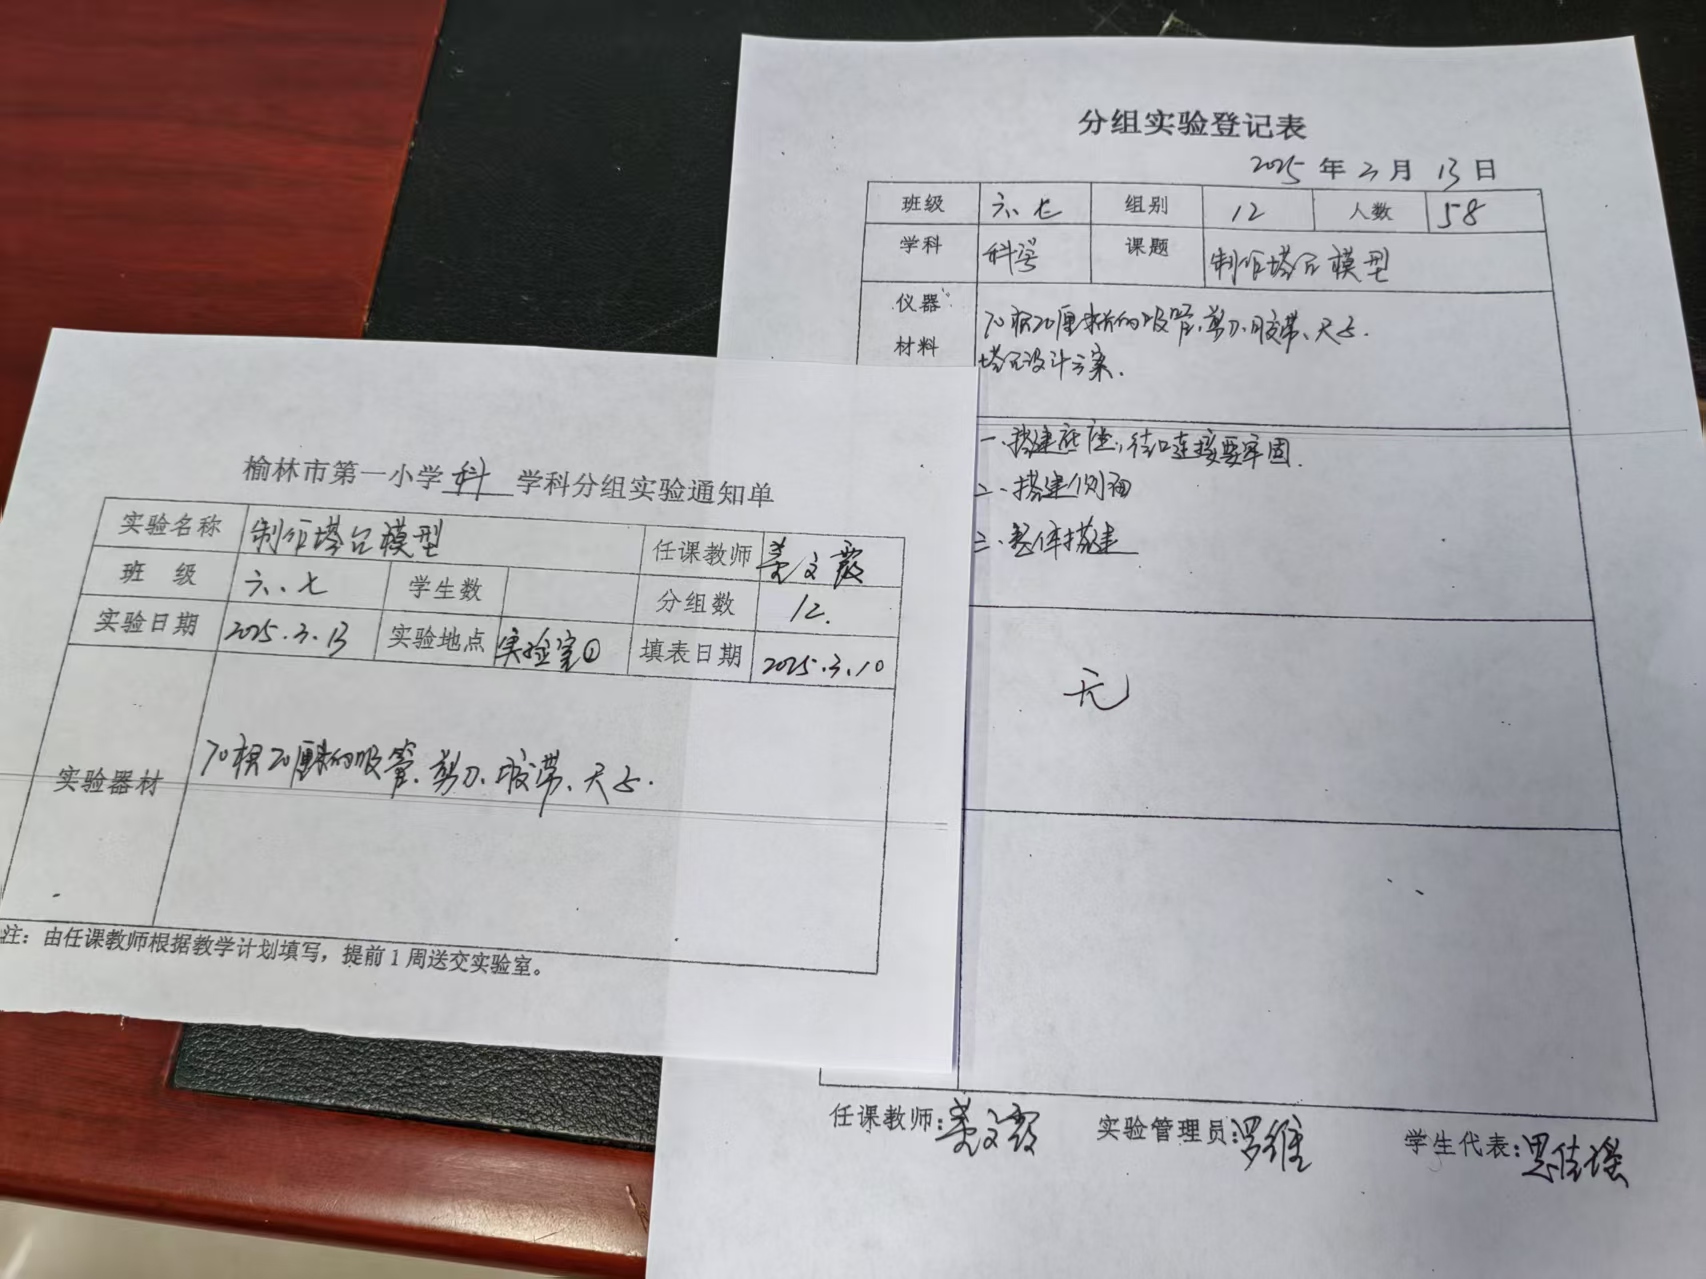 榆林市第一小学 科 学科分组实验通知单
实验名称 制作塔台模型 任课教师 姜文霞
班 级 六、七 学生数 分组数 12.
实验日期 2025.3.13 实验地点 实验室① 填表日期 2025.3.10
实验器材 70根20厘米的吸管、剪刀、胶带、尺子.
注：由任课教师根据教学计划填写，提前1周送交实验室。
分组实验登记表
2025 年 3 月 13 日
班级 六、七 组别 12 人数 58
学科 科学 课题 制作塔台模型
仪器 材料 70根20厘米长的吸管、剪刀、胶带、尺子.
塔台设计方案.
一、搭建底座，结口连接要牢固.
二、搭建侧面
三、整体搭建
无
任课教师：姜文霞 实验管理员：罗维 学生代表：思佳瑶